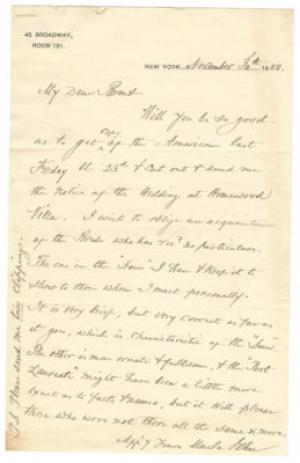 45 BROADWAY,
ROOM 191.
NEW YORK, November 30th 1888.
My Dear
Will you be so good
as to get copy of the American last
Friday the 23d & Cut out & send me
the Notice of the Wedding at Homewood
Villa. I wish to oblige an acquaintance
of the Bride who has rec'd no particulars.
The one in the "Sun" I have & keep it to
show to those whom I meet personally.
It is very brief, but very correct as far as
it goes, which is characteristic of the "Sun".
The other is more ornate & fulsome, & the "Poet
Laureate" might have been a little more
exact as to facts & names, but it will please
those who were not there all the same & more.
Aff'y Yours Uncle
P.S. Please send me two clippings.